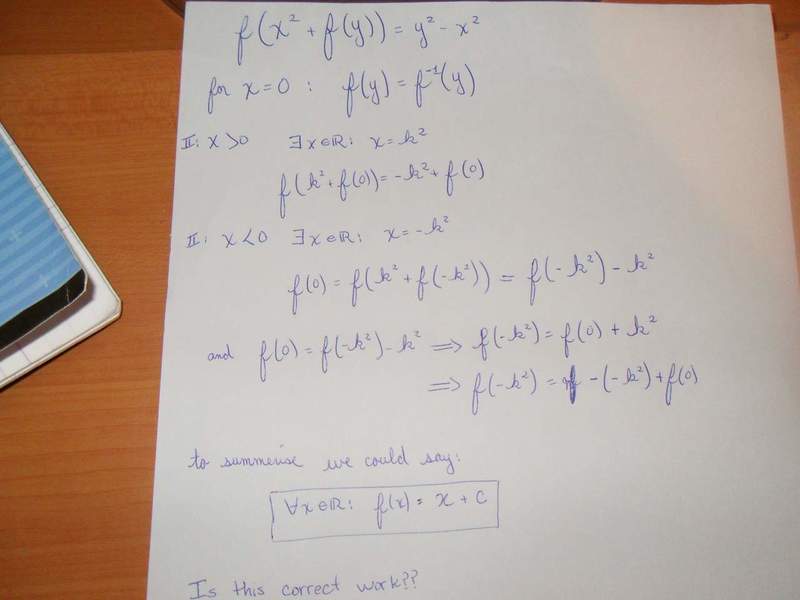 f(x² + f(y)) = y² - x²
for x = 0 : f(y) = f⁻¹(y)
II: x > 0 ∃x∈ℝ: x = k²
f(k² + f(0)) = -k² + f(0)
II: x < 0 ∃x∈ℝ: x = -k²
f(0) = f(k² + f(-k²)) = f(-k²) - k²
and f(0) = f(-k²) - k² ⟹ f(-k²) = f(0) + k²
⟹ f(-k²) = -(-k²) + f(0)
to summerise we could say:
∀x∈ℝ: f(x) = x + c
Is this correct work??